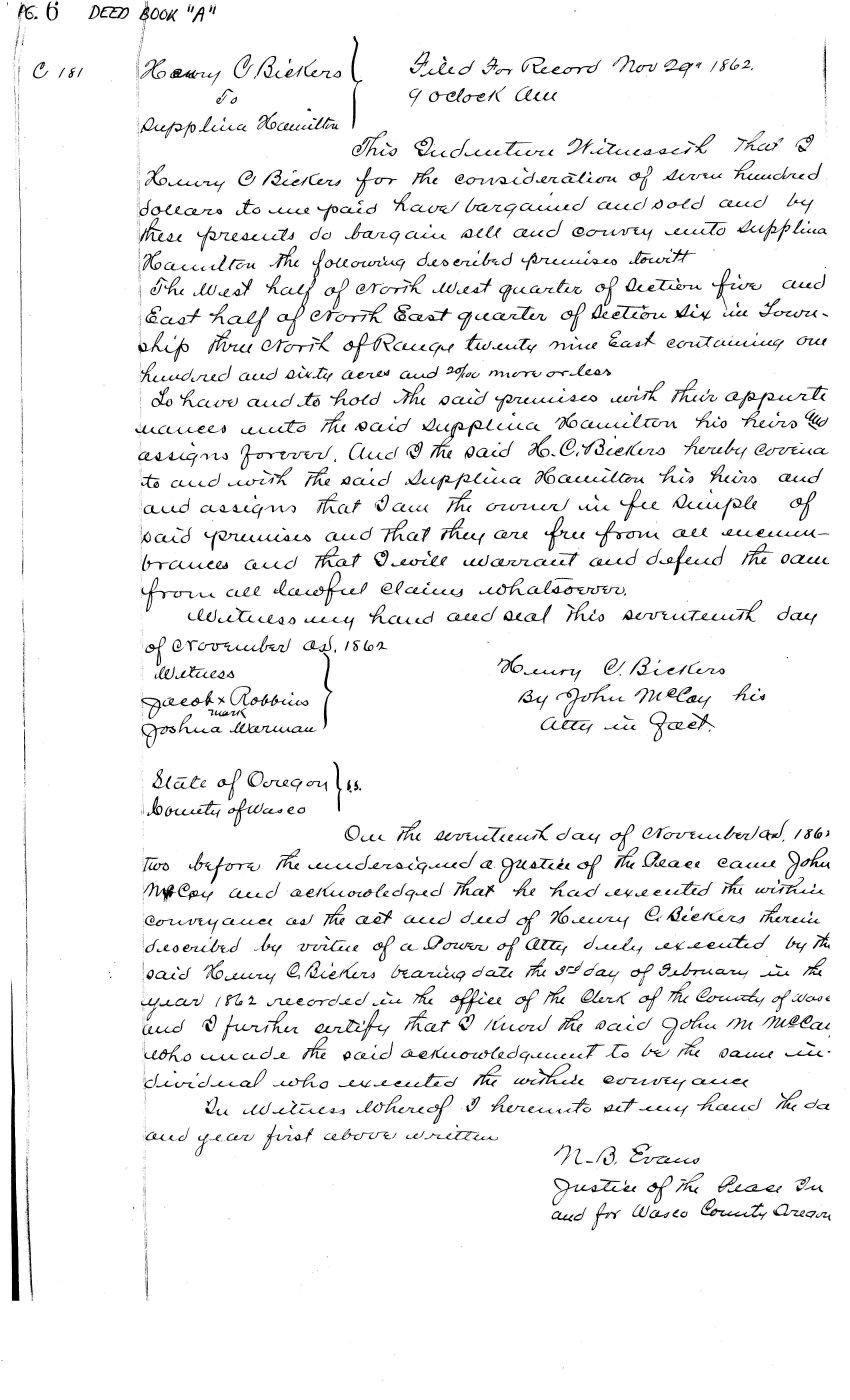 PG. 6 DEED BOOK "A"
C 181
Henry C Bickers
To
Supplina Hamilton
Filed For Record Nov 29" 1862.
9 oclock Am
This Indenture Witnesseth That I
Henry C Bickers for the consideration of seven hundred
dollars to me paid have bargained and sold and by
these presents do bargain sell and convey unto Supplina
Hamilton the following described premises towitt
The West half of North West quarter of Section five and
East half of North East quarter of Section Six in Town-
ship three North of Range twenty nine East containing one
hundred and sixty acres and 20/100 more or less
To have and to hold the said premises with their appurte
nances unto the said Supplina Hamilton his heirs and
assigns forever. And I the said H. C. Bickers hereby covena
to and with the said Supplina Hamilton his heirs and
and assigns that I am the owner in fee simple of
said premises and that they are free from all encum-
brances and that I will warrant and defend the sam
from all lawful claims whatsoever.
Witness my hand and seal this seventeenth day
of November AD. 1862
Witness
Jacob x Robbins
mark
Joshua Warman
Henry C. Bickers
By John McCoy his
Atty in Fact.
State of Ooregon
County of Wasco
s.s.
On the seventeenth day of November AD. 1862
two before the undersigned a Justice of the Peace came John
McCoy and acknowledged that he had executed the within
conveyance as the act and deed of Henry C. Bickers therein
described by virtue of a Power of Atty duly executed by th
said Henry C. Bickers bearing date the 3rd day of February in the
year 1862 recorded in the office of the Clerk of the County of Wasc
and I further certify that I know the said John M McCoy
who made the said acknowledgement to be the same in-
dividual who executed the within conveyance
In Witness Whereof I hereunto set my hand the da
and year first above written
N. B. Evans
Justice of the Peace In
and for Wasco County Oregon